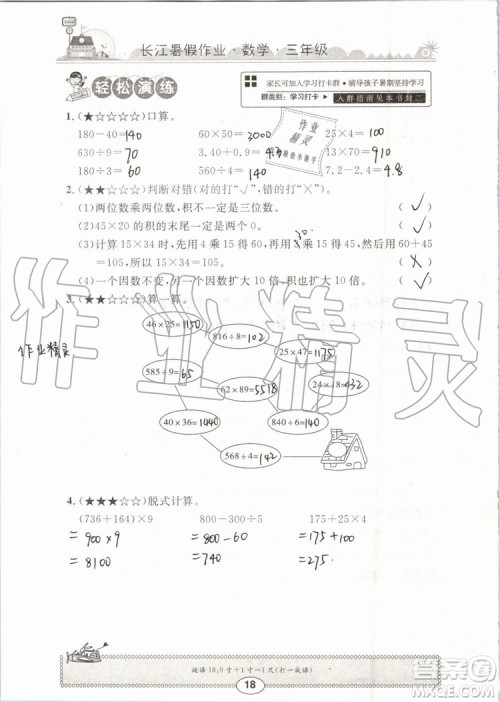 长江暑假作业·数学·三年级
轻松演练
家长可加入学习打卡群·辅导孩子暑期坚持学习
群类别:学习打卡
入群指南见本书封二
1.(★☆☆☆☆)口算。
180-40=140 60×50=3000 25×4=100
630÷9=70 4.3 13×70=910
180÷3=60 560÷4=140 7.2-2.4=4.8
作业精灵
2.(★★☆☆☆)判断对错(对的打“√”,错的打“×”)。
(1)两位数乘两位数,积不一定是三位数。 (√)
(2)45×20的积的末尾一定有两个0。
(3)计算15×34时,先用4乘15得60,再用3乘15得45,然后用60+45
30
=105,所以15×34=105。 (×)
(4)一个因数不变,另一个因数扩大10倍,积也扩大10倍。 (√)
3.(★★☆☆☆)算一算。
46×25=1150
816÷8=102
25×47=1175
作业精灵
585÷9=65
62×89=5518
24×18=432
40×36=1440
840÷6=140
568÷4=142
4.(★★★☆☆)脱式计算。
(736+164)×9 800-300÷5 175+25×4
=900×9 =800-60 =175+100
=8100 =740 =275
谜语18:9寸+1寸=1尺(打一成语)
18
作业精灵
答案圈